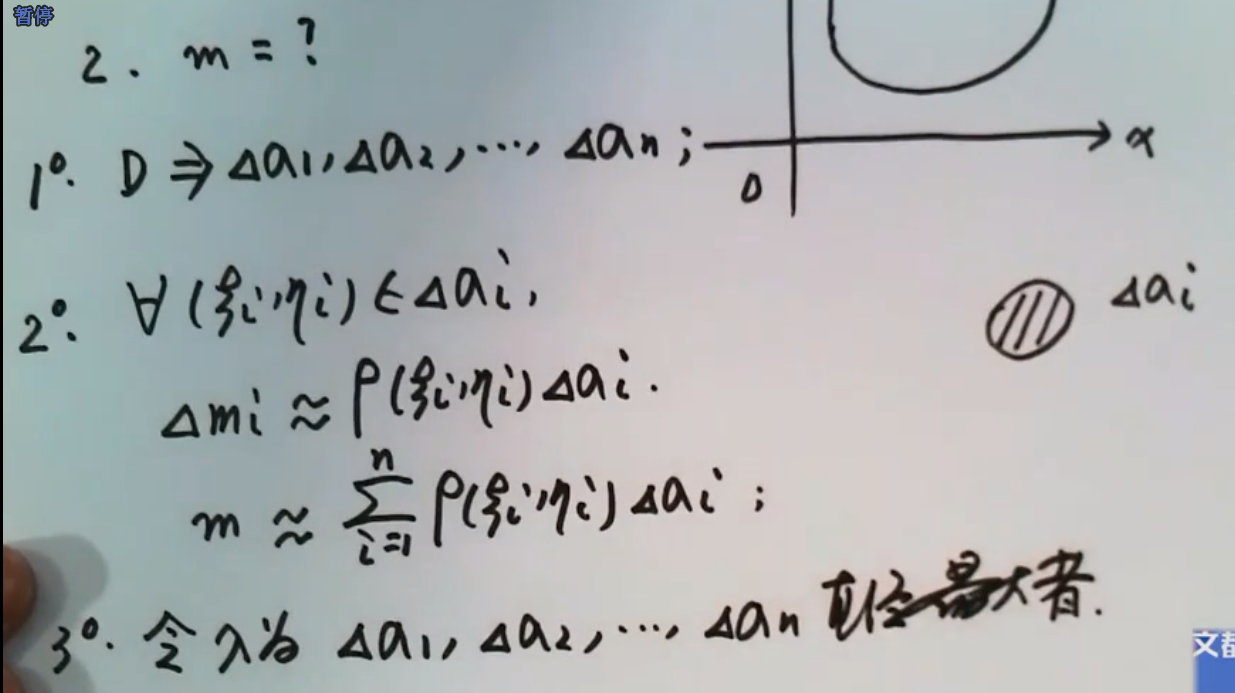 暂停
2. m = ?
1°. D ⇒ Δa₁, Δa₂, ···, Δaₙ;
x
0
2°. ∀(ξᵢ, ηᵢ) ∈ Δaᵢ,
Δaᵢ
Δmᵢ ≈ ρ(ξᵢ, ηᵢ)Δaᵢ.
m ≈ ∑ᵢ₌₁ⁿ ρ(ξᵢ, ηᵢ)Δaᵢ;
3°. 令λ为 Δa₁, Δa₂, ···, Δaₙ 直径最大者.
文都